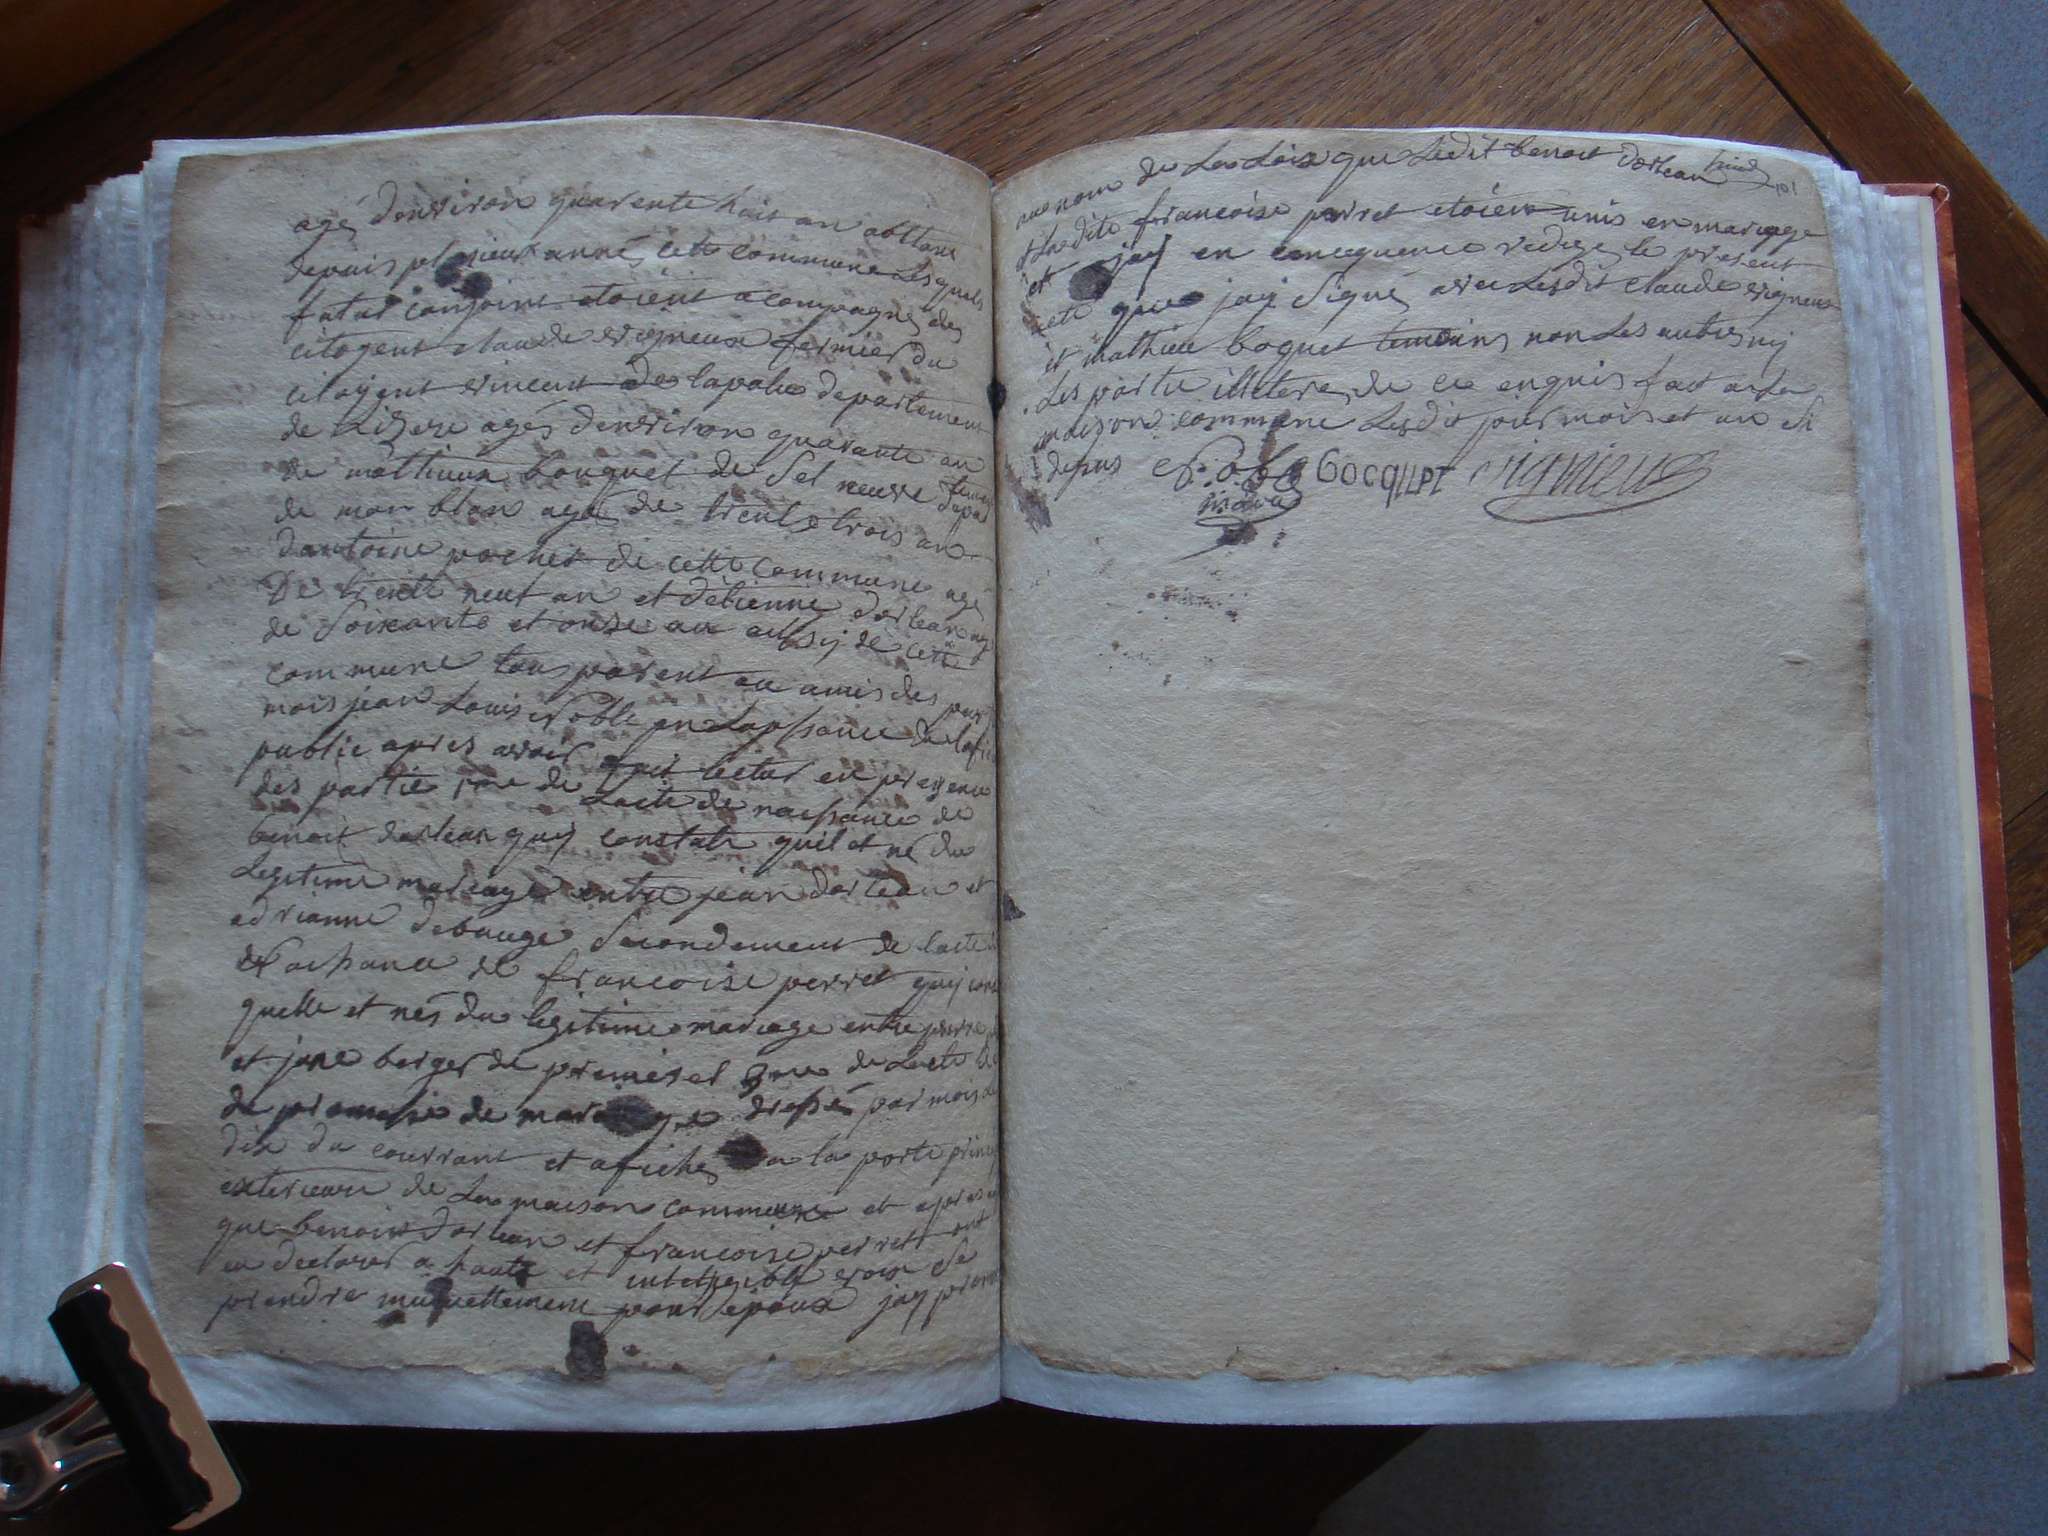 agé denviron quarente huit an
depuis plusieur anné cette commune Lesquels
futur conjoint etoient acompagné des
citoyent claude vigneux fermier du
citoyent vincent de lapalu departement
de Lizere agés denviron quarante an
de mathieux bouquet de Sel neuve
de mon blan agé de trente trois an
dantoine pochet de cette commune agé
De trente neuf an et détienne dorlean agé
de Soixante et onze an aussy de cette
commune tous parent ou amis des
mois jean Louis Noble en Labsance de
public apres avoir fait lectur en presence
des partie 1re de Lacte de naissance de
benoit dorlean quij constate quil et né du
Legitime mariage entre jean dorlean et
adrianne debauge Secondement de lacte
de Naissance de francoise perret quij
quelle et nés du legitime mariage entre pierre
et jane berger de premier et 3me de Lacte
de promesse de mariage dressé par mois
dix du courrant et afiché a la porte
exterieure de La maison commune et apres
que benoit dorlean et francoise perret ont
eu declarer a haute et voix Se
prendre mutuellement pour Epoux jay
au nom de La Loix que Ledit benoit dorlean
et Ladite francoise perret etoient unis en mariage
et jay en concequence redige le present
acte que jay Signé avec Lesdit claude vigneux
et mathieu boquet temoins non Les autres nij
Les partie illetere de ce enquis fait a La
maison commune Lesdit jour mois et an
depus Noble BOCQUET vignieux